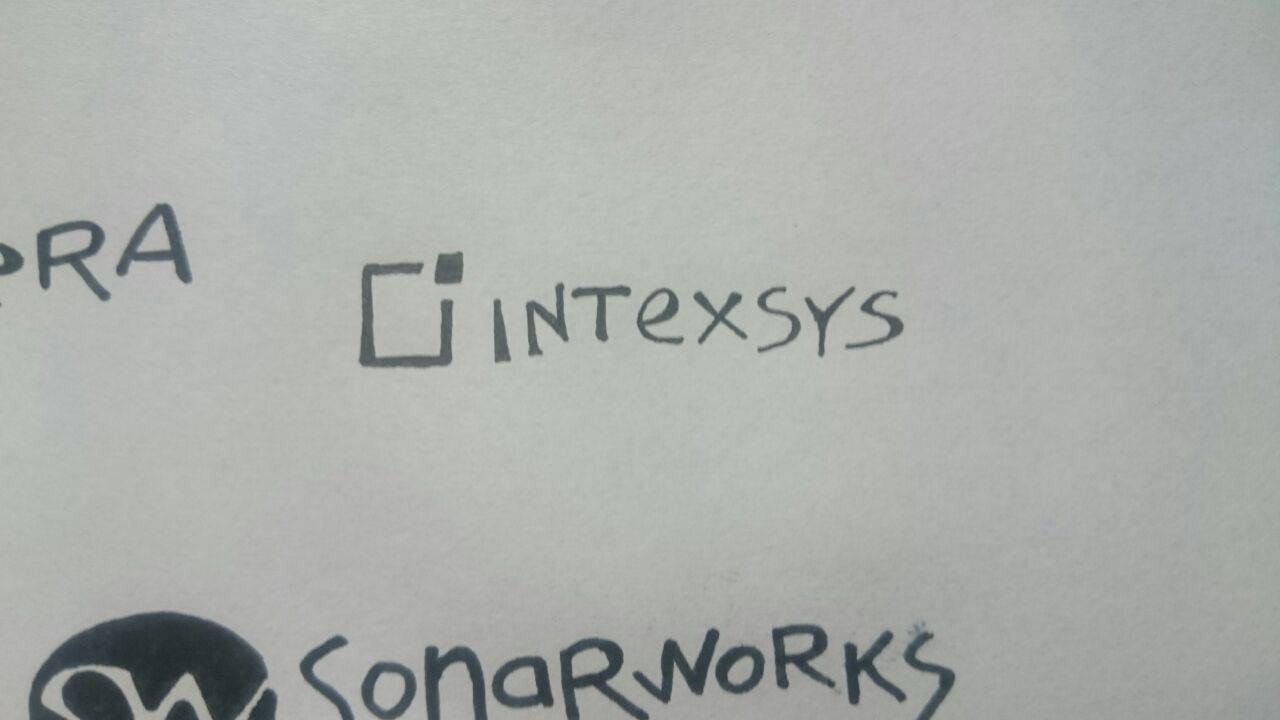 INTexSYS
SonaRWoRKS